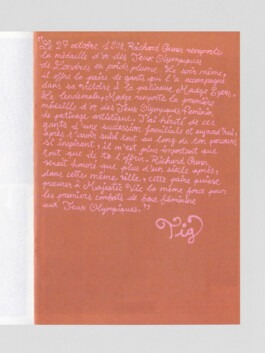 "Le 27 octobre 1908, Richard Gunn remporte
la médaille d'or des Jeux Olympiques
de Londres en poids plume. Le soir même,
il offre la paire de gants qui l'a accompagné
dans sa victoire à la patineuse Madge Syers.
Le lendemain, Madge remporte la première
médaille d'or des Jeux Olympiques féminin
de patinage artistique. J'ai hérité de ces
gants d'une succession familiale et aujourd'hui,
après l'avoir suivi tout au long de son parcours
si inspirant, il m'est plus important que
tout que de te l'offrir. Richard Gunn,
serait honoré que plus d'un siècle après,
dans cette même ville, cette paire puisse
procurer à Majestic Vic la même force pour
les premiers combats de boxe féminine
aux Jeux Olympiques."
Tig